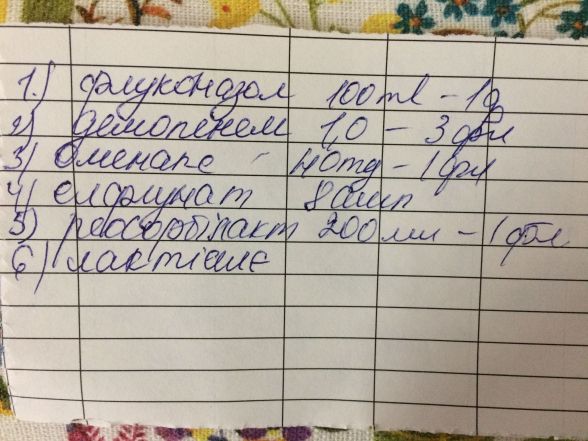 1.) флуконазол 100ml - 1ф
2) демопенем 1,0 - 3 фл
3) Оменапс - 40mg - 1 фл
4) елфунат 8 амп
5) реосорбілакт 200мл - 1 фл
6) лактіале